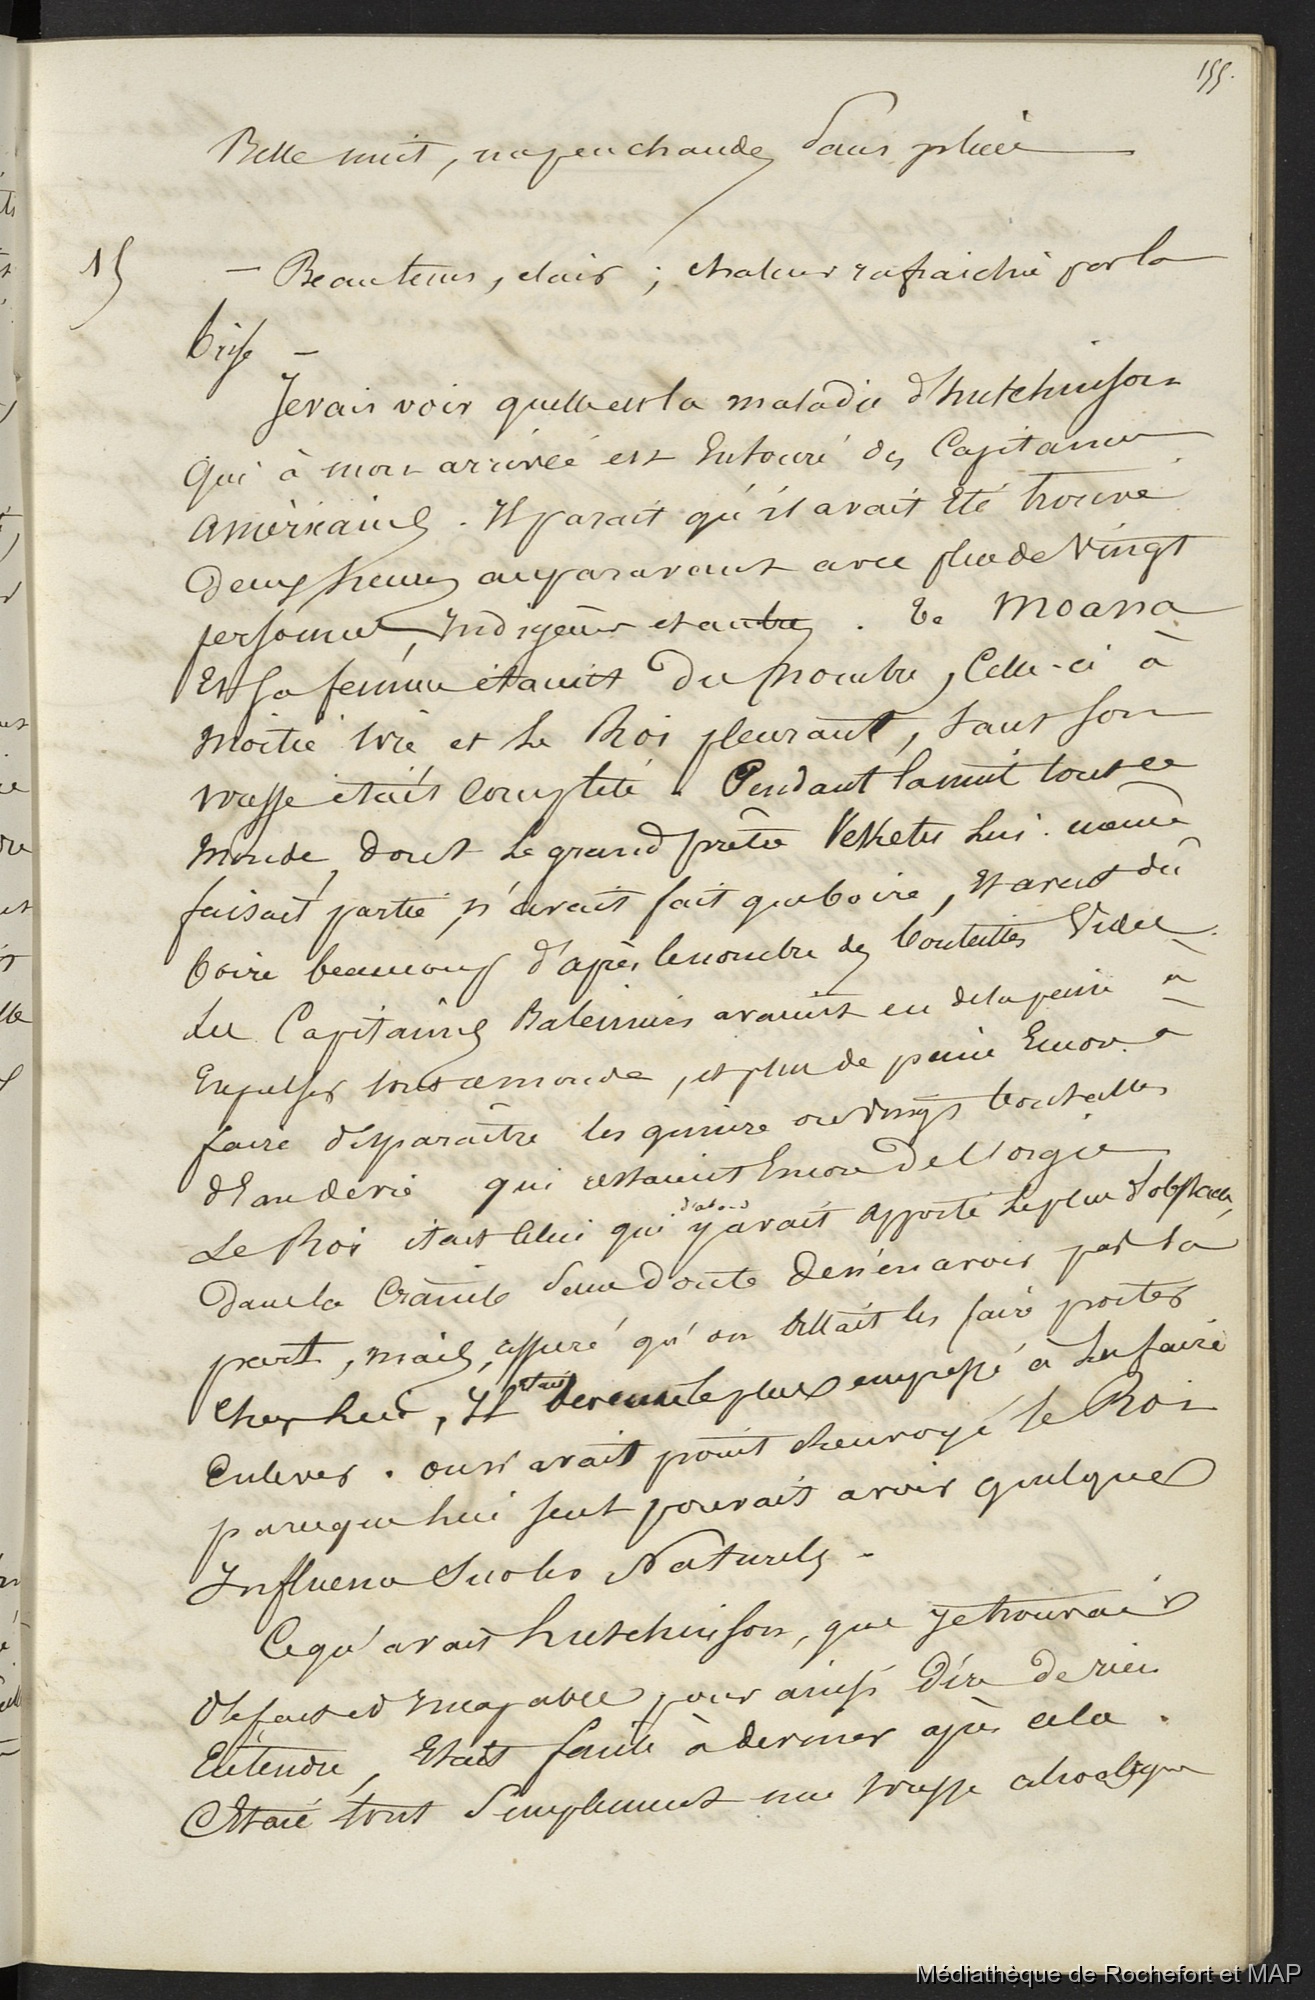 155.
Belle nuit, un peu chaude, sans pluie
15 — Beau tems, clair ; chaleur rafraichie par la
brise —
Je vais voir quelle est la maladie d'hutchinson
qui à mon arrivée est Entouré des Capitaines
américains. Il parait qu'il avait été trouvé
Deux heures auparavant avec plus de Vingt
personnes, Indigènes et autres. Te Moana
Et sa femme étaient du nombre, Celle-ci à
moitié ivre et le Roi pleurant, tant son
ivresse était complète. Pendant la nuit tout ce
monde, dont le grand prêtre Veketu lui-même
faisait partie, n'avait fait que boire, Et avait dû
boire beaucoup d'après le nombre des bouteilles Vides.
Les Capitaines Baleiniers avaient eu de la peine à
Expulser tout ce monde, et plus de peine Encore à
faire disparaître les quinze ou vingt bouteilles
d'Eau de vie qui restaient Encore de l'orgie
Le Roi était Celui qui d'abord y avait apporté le plus d'obstacles,
Dans la Crainte sans doute de n'en avoir pas sa
part, mais, assuré qu'on allait les faire porter
Chez lui, Il était devenu le plus empressé à les faire
Enlever. on n'avait point renvoyé le Roi
parce que lui seul pouvait avoir quelque
Influence sur les Naturels.
Ce qu'avait hutchinson, que je trouvais
défait et Incapable pour ainsi Dire de rien
Entendre, Etait facile à deviner après cela.
C'Etait tout simplement une ivresse alcoolique
Médiathèque de Rochefort et MAP